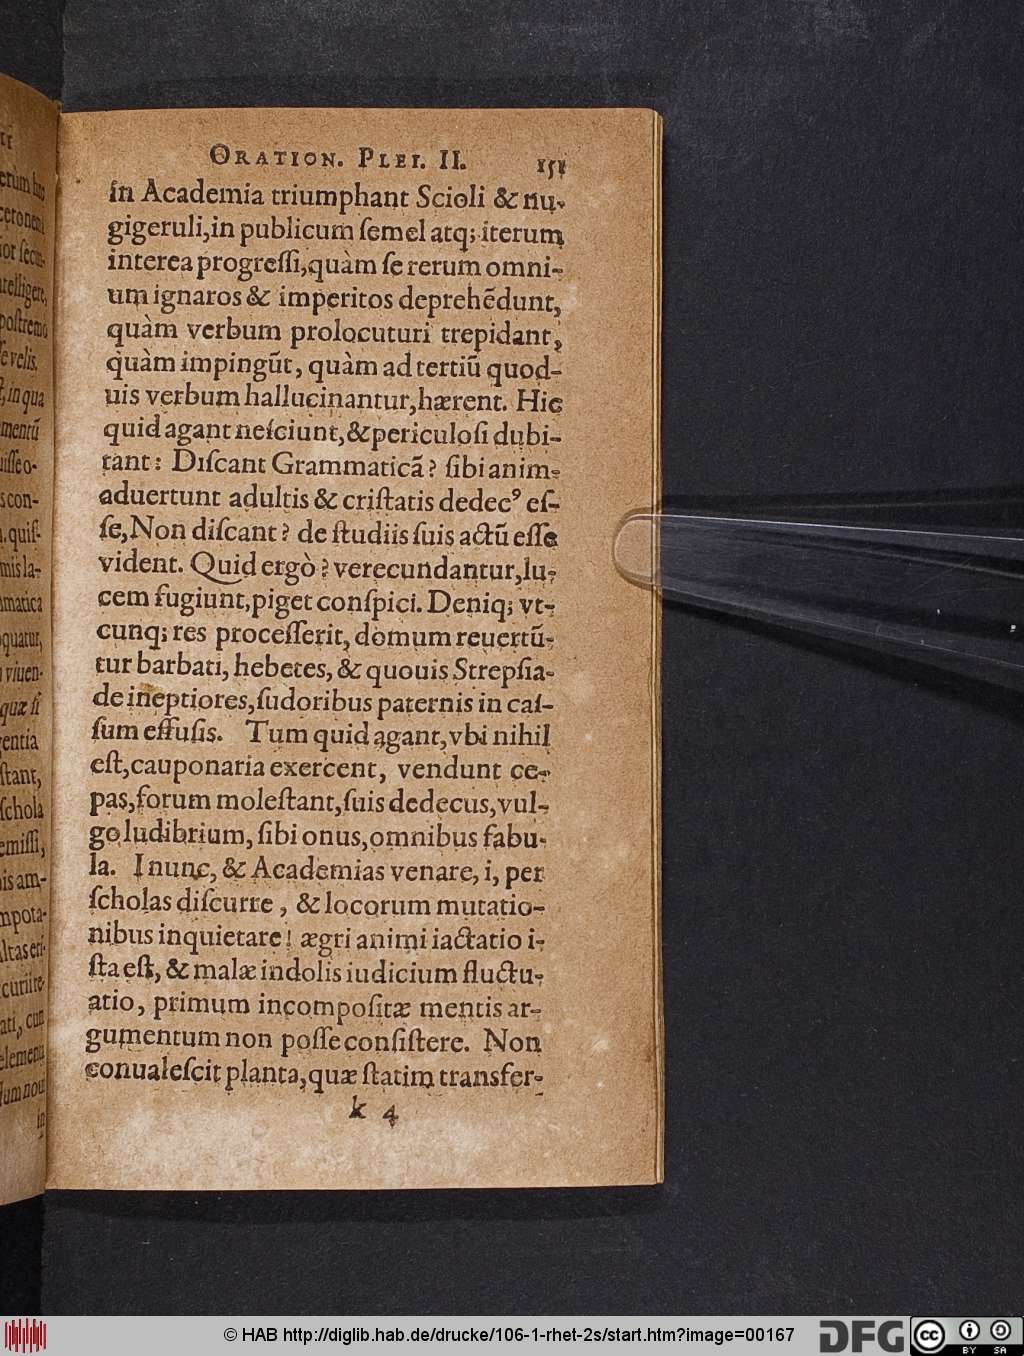 ORATION. PLEI. II. 151
in Academia triumphant Scioli & nu-
gigeruli,in publicum ſemel atq; iterum
interea progreſſi,quàm ſe rerum omni-
um ignaros & imperitos deprehēdunt,
quàm verbum prolocuturi trepidant,
quàm impingūt, quàm ad tertiū quod-
uis verbum hallucinantur,hærent. Hic
quid agant neſciunt,& periculoſi dubi-
tant: Diſcant Grammaticā? ſibi anim-
aduertunt adultis & criſtatis dedecꝰ eſ-
ſe,Non diſcant? de ſtudiis ſuis actū eſſe
vident. Quid ergò? verecundantur,lu-
cem fugiunt,piget conſpici. Deniq; vt-
cunq; res proceſſerit, domum reuertū-
tur barbati, hebetes, & quouis Strepſia-
de ineptiores,ſudoribus paternis in caſ-
ſum effuſis. Tum quid agant,vbi nihil
eſt,cauponaria exercent, vendunt ce-
pas,forum moleſtant,ſuis dedecus,vul-
go ludibrium, ſibi onus,omnibus fabu-
la. I nunc, & Academias venare, i, per
ſcholas diſcurre, & locorum mutatio-
nibus inquietare! ægri animi iactatio i-
ſta eſt, & malæ indolis iudicium fluctu-
atio, primum incompoſitæ mentis ar-
gumentum non poſſe conſiſtere. Non
conualeſcit planta,quæ ſtatim transfer-
k 4
II
ſe velis.
, in qua
con-
quiſ-
mis la-
quatur,
viuen-
quæ ſi
ſtant,
ſchola
emiſſi,
is am-
mpota-
cun
elementa
in
© HAB http://diglib.hab.de/drucke/106-1-rhet-2s/start.htm?image=00167
DFG
cc
BY SA